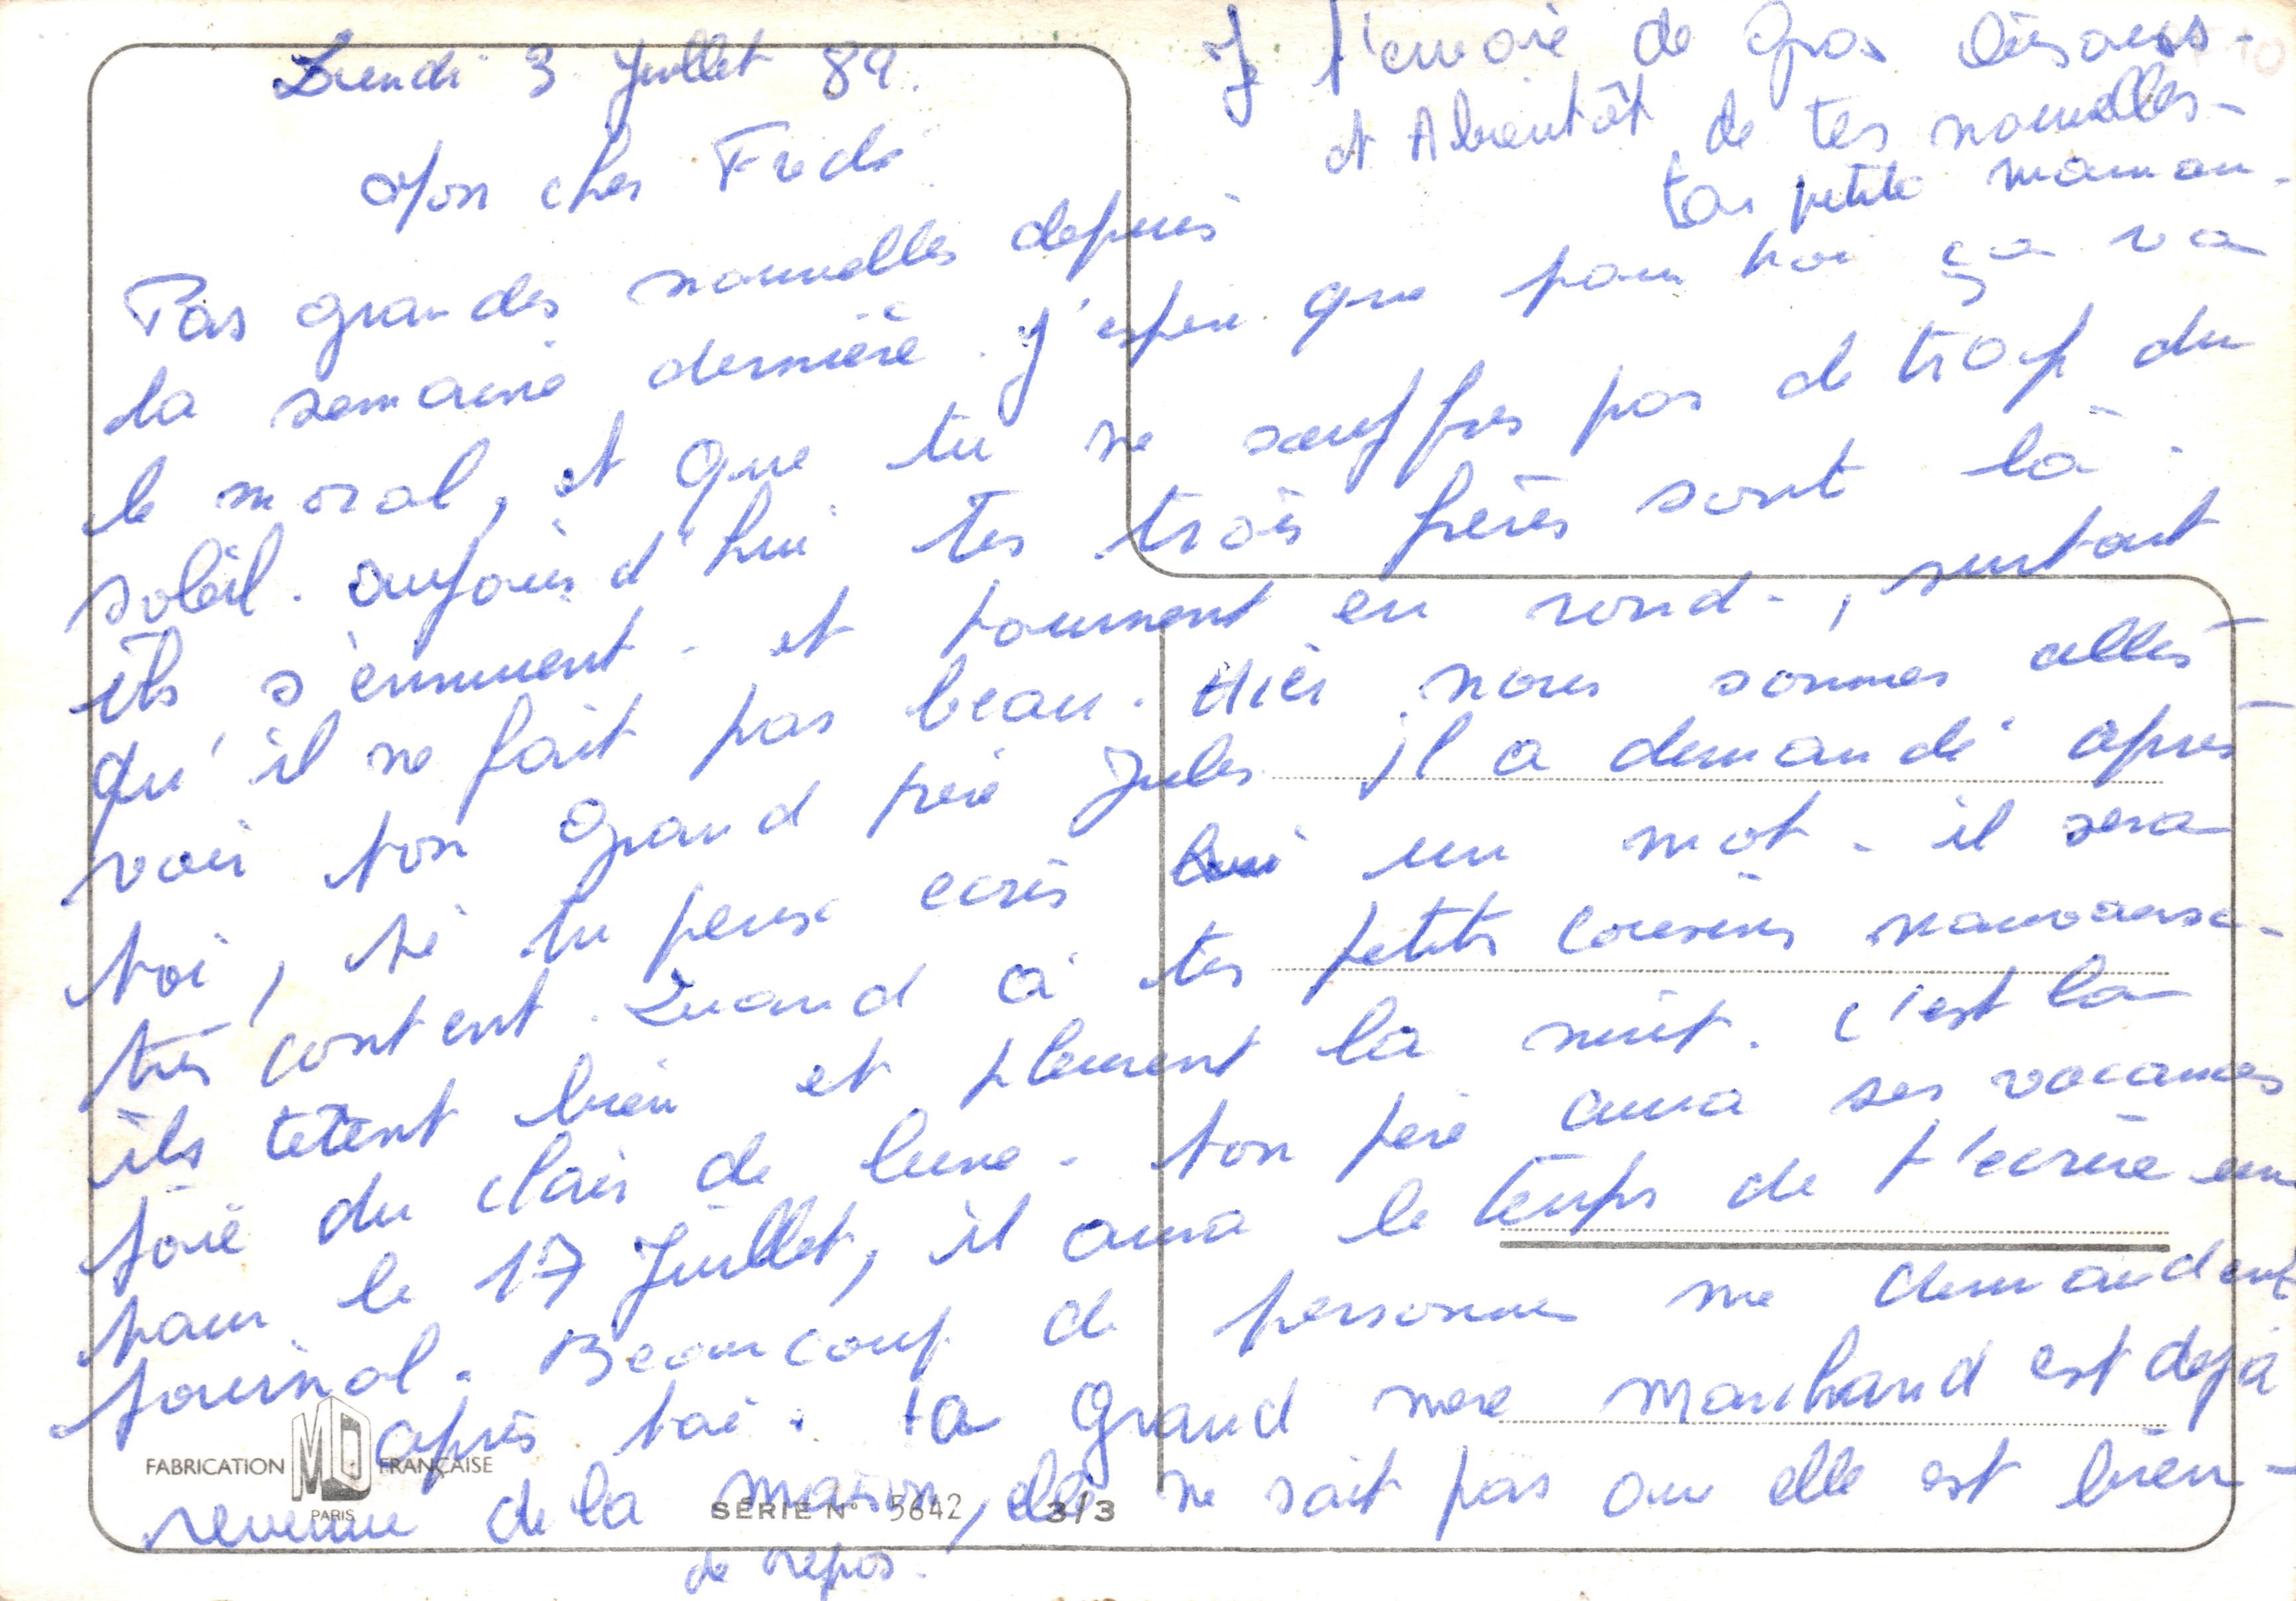 Lundi 3 Juillet 89.
Mon cher Fredé
Pas grandes nouvelles depuis
la semaine dernière. J'espère que pour toi ça va
le moral, et que tu ne souffres pas de trop du
soleil. aujourd'hui tes trois frères sont là.
ils s'ennuient. et tournent en rond, surtout
qu'il ne fait pas beau. Hier nous sommes allés
voir ton grand père Jules il a demandé après
toi, si tu peux ecris lui un mot. il sera
très content. Quand à tes petits cousins
ils tètent bien et pleurent la nuit. c'est la
joie du clair de lune. ton père aura ses vacances
pour le 17 Juillet, il aura le temps de t'ecrire un
journal. Beaucoup de personnes me demandent
après toi. ta grand mère Marchand est dejà
revenue de la maison, elle ne sait pas ou elle est bien-
de repos.
Je t'envoie de gros bisous.
et A bientôt de tes nouvelles-
ta petite maman.
FABRICATION MD FRANÇAISE
PARIS
SÉRIE N° 5642 3/3